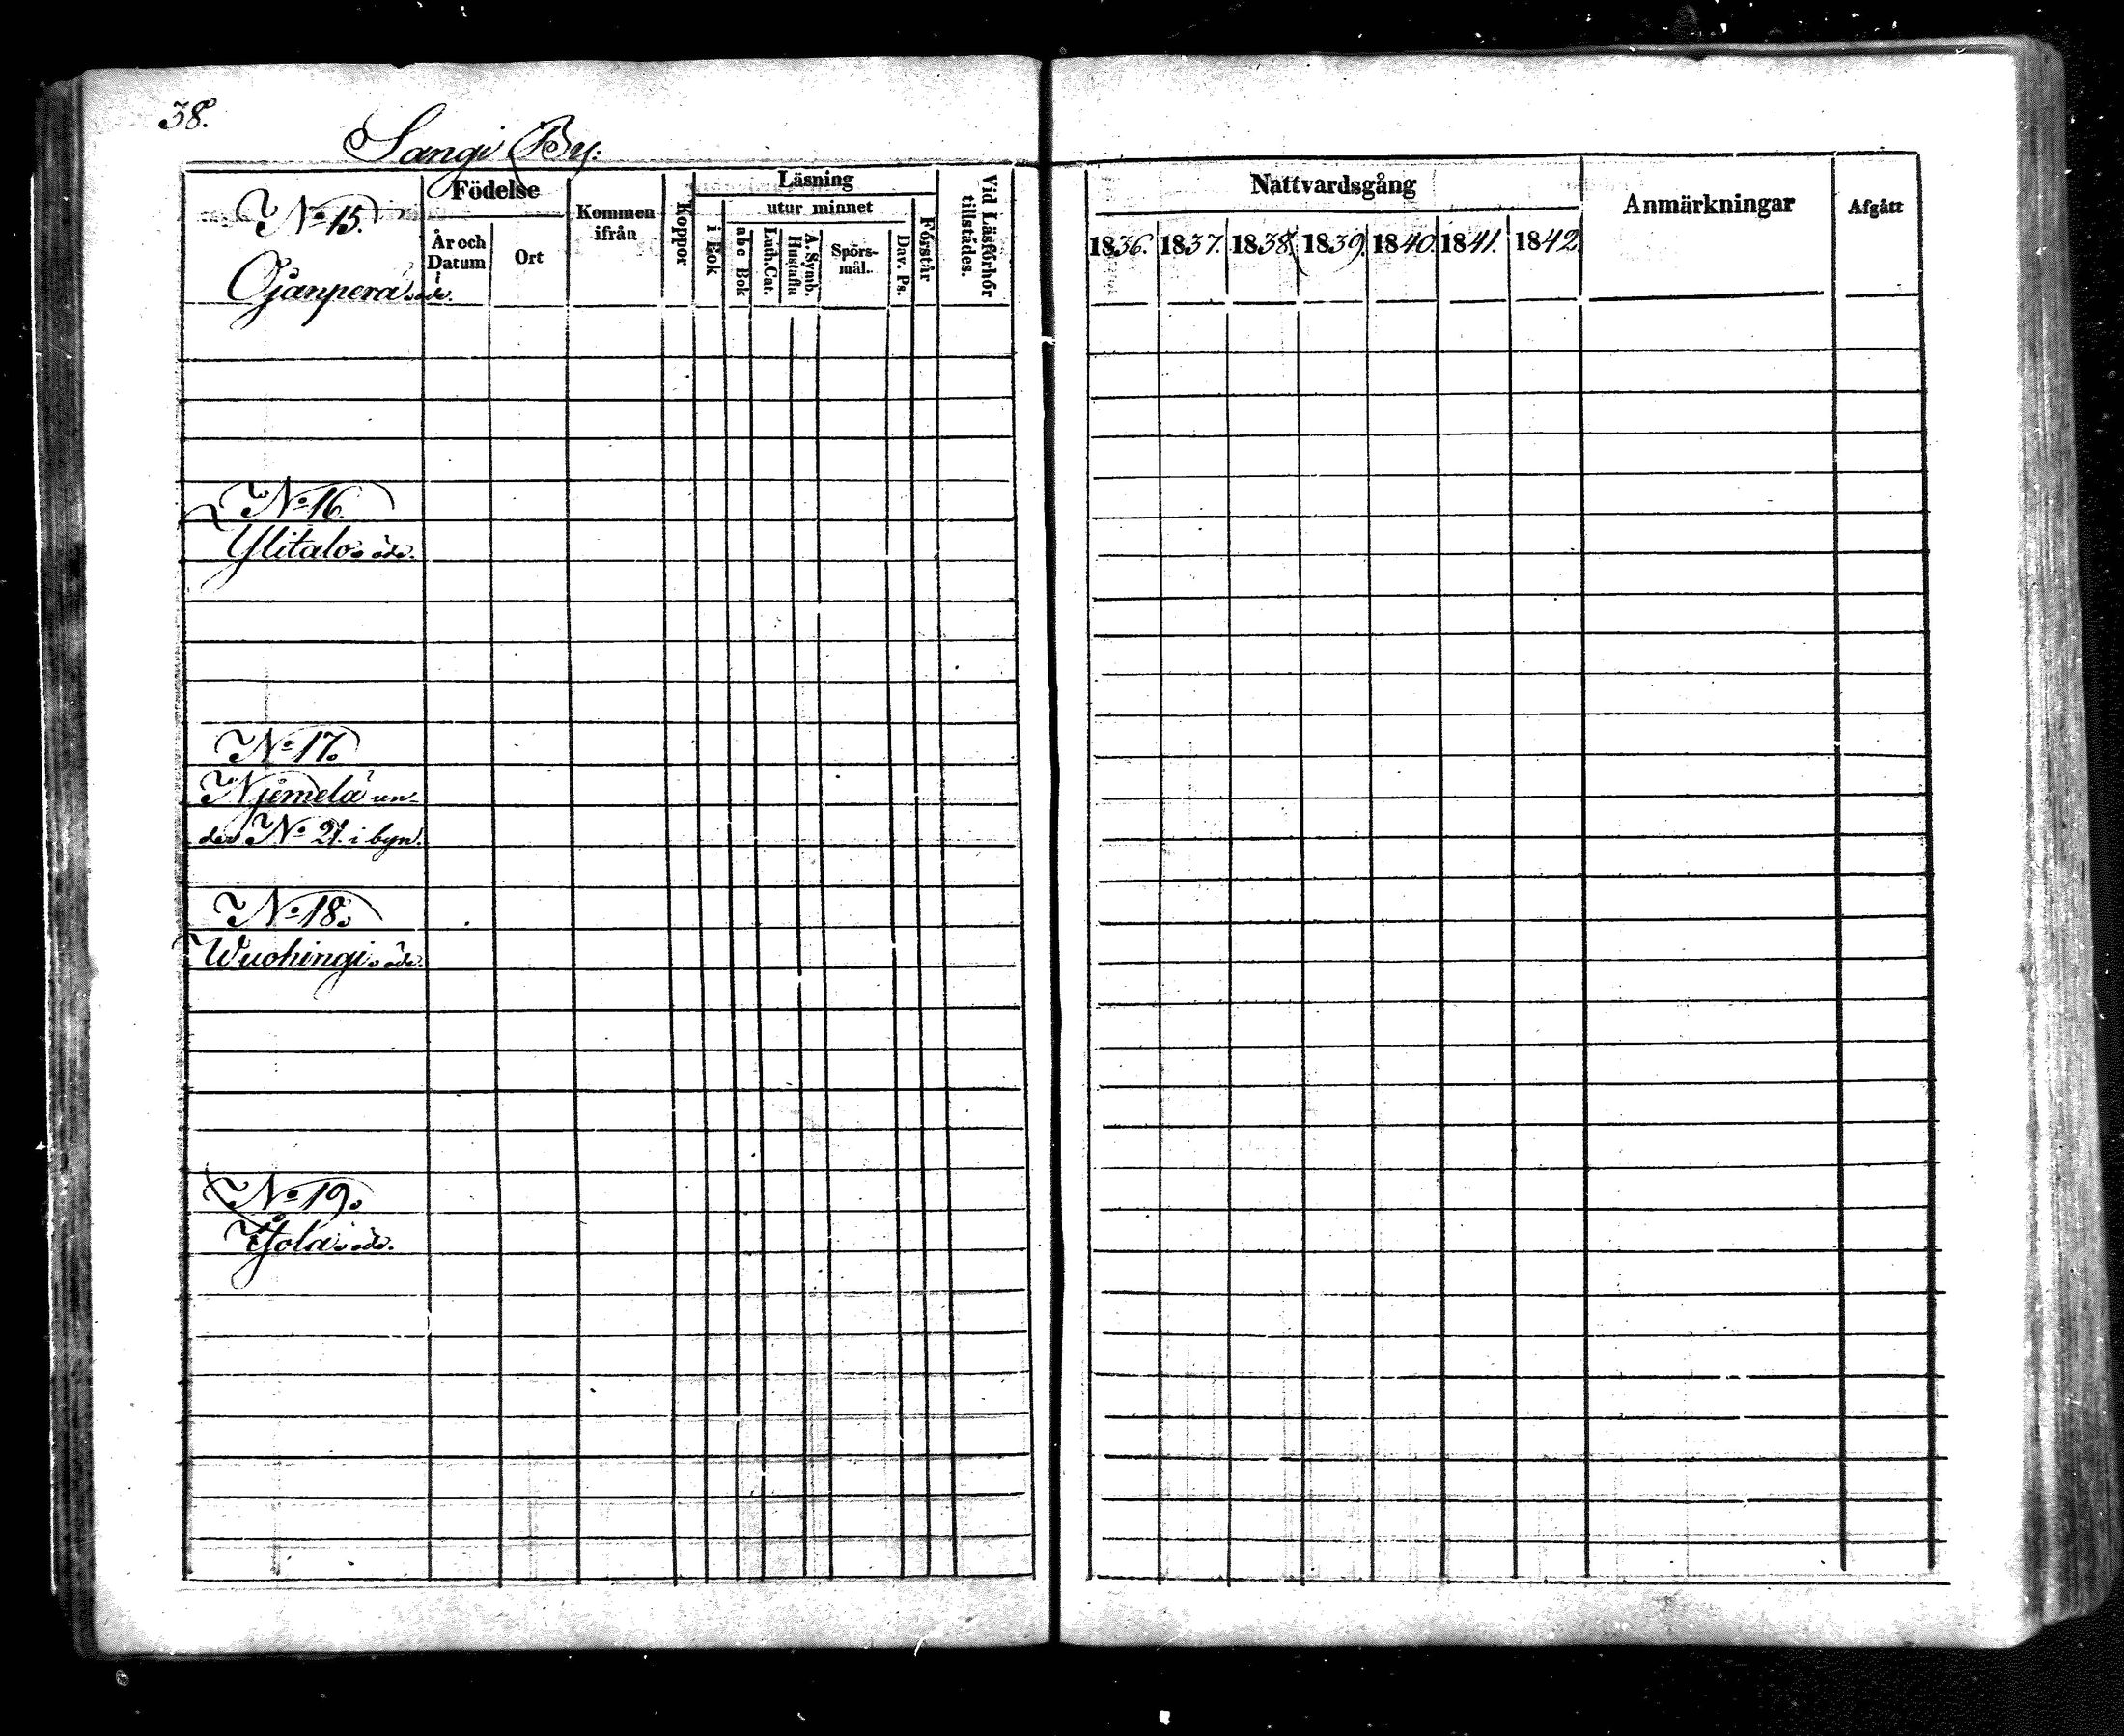 38.
Sangi By.
No 15.
Ojanperä. öde.
Födelse
År och Datum
Ort
Kommen ifrån
Koppor
Läsning
i Bok
utur minnet
abc Bok
Luth. Cat.
A. Symb. Hustafla
Spörs-mål.
Dav. Ps.
Förstår
Vid Läsförhör tillstädes.
Nattvardsgång
1836. 1837. 1838. 1839. 1840. 1841. 1842.
Anmärkningar
Afgått
No 16.
Ylitalo. öde.
No 17.
Njemelä un-
der No 21. i byn.
No 18.
Wuohingi. öde.
No 19.
öde.